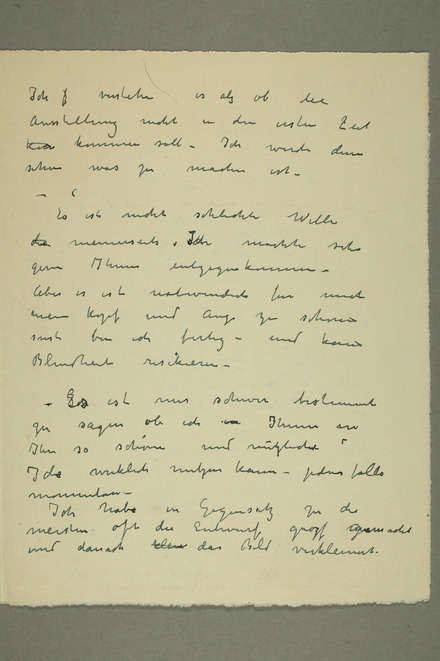 Ich verstehe es als ob die
Ausstellung nicht in der ersten Zeit
kommen soll. Ich werde dann
sehen was zu machen ist.
Es ist nicht schlechter Wille
meinerseits. Ich möchte sehr
gern Ihnen entgegenkommen.
Aber es ist notwendig für mich
meinen Kopf und Auge zu schonen
sonst bin ich fertig – und kann
Blindheit riskieren –
– Es ist mir schwer bestimmt
zu sagen ob ich Ihnen in
Ihr so schöne und nützliche
Ide wirklich nutzen kann – jedenfalls
momentan –
Ich habe in Gegensatz zu die
meisten oft die Entwurf gross gemacht
und danach das Bild verkleinert.